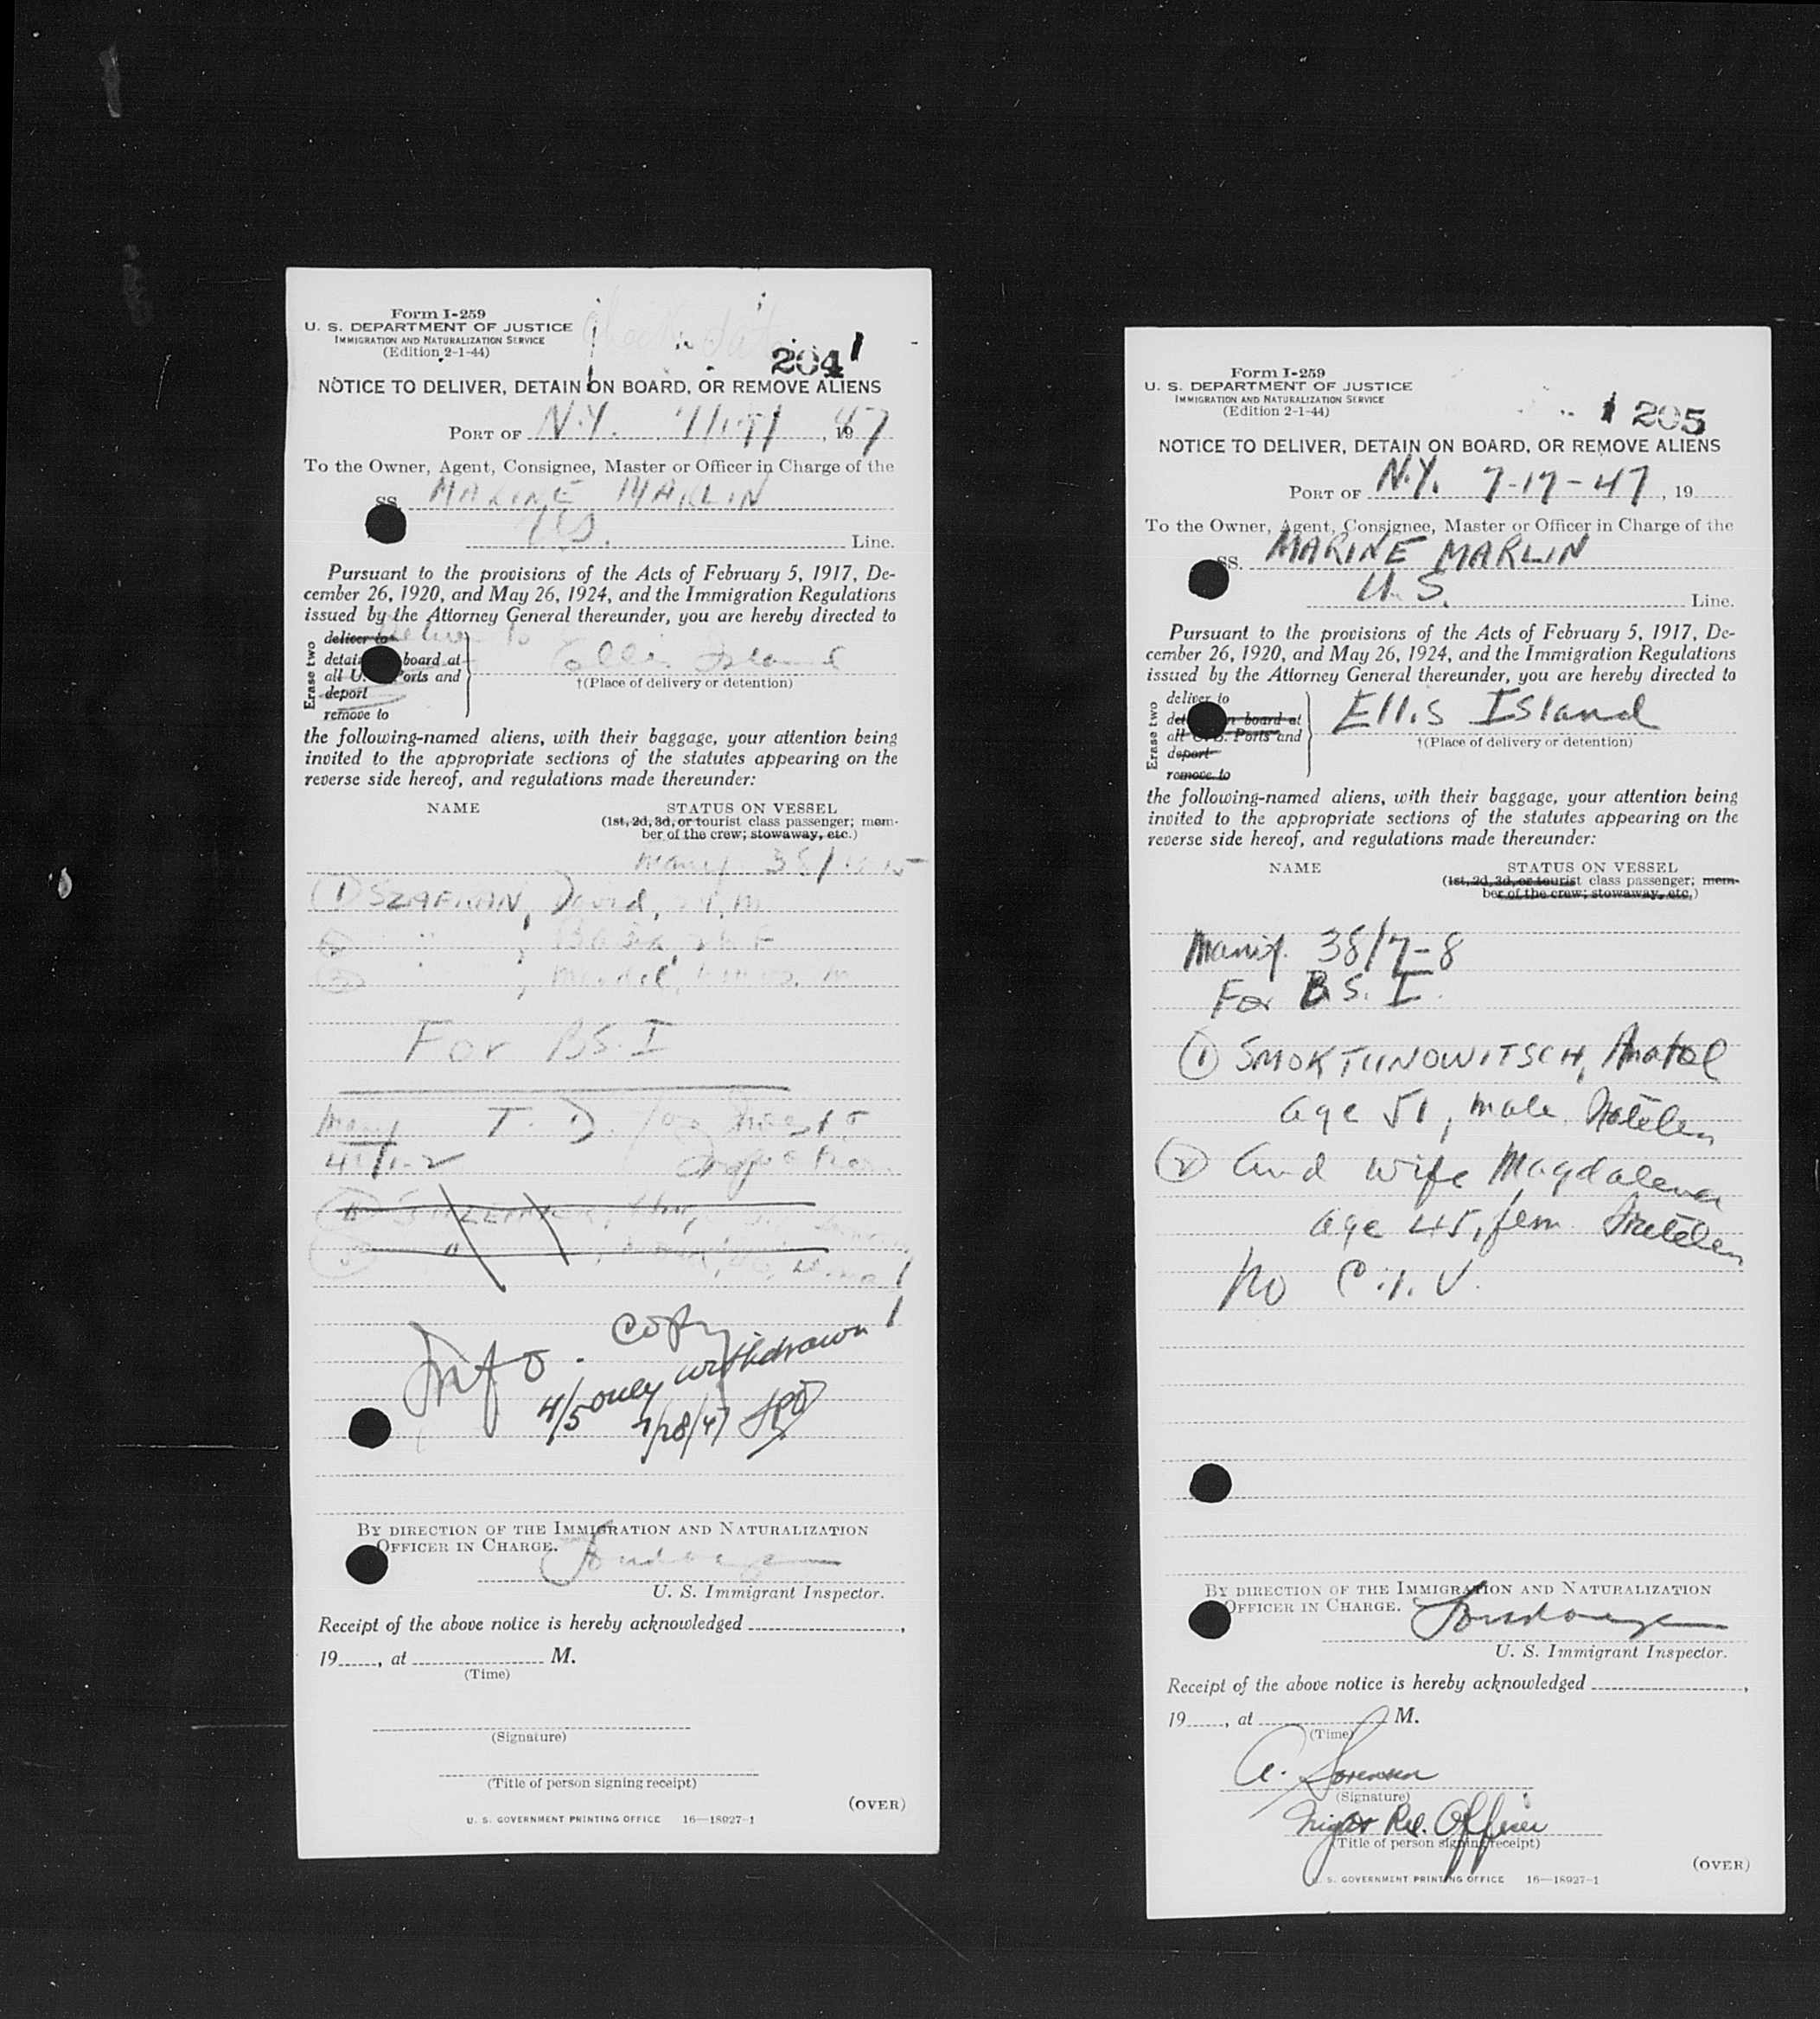 Form I-259
U. S. DEPARTMENT OF JUSTICE
IMMIGRATION AND NATURALIZATION SERVICE
(Edition 2-1-44)
204
NOTICE TO DELIVER, DETAIN ON BOARD, OR REMOVE ALIENS
PORT OF N.Y. , 1947
To the Owner, Agent, Consignee, Master or Officer in Charge of the
SS. MARINE MARLIN
U.S. Line.
Pursuant to the provisions of the Acts of February 5, 1917, De-
cember 26, 1920, and May 26, 1924, and the Immigration Regulations
issued by the Attorney General thereunder, you are hereby directed to
Erase two
deliver to
board at
Ports and
deport
remove to
Ellis Island
†(Place of delivery or detention)
the following-named aliens, with their baggage, your attention being
invited to the appropriate sections of the statutes appearing on the
reverse side hereof, and regulations made thereunder:
NAME STATUS ON VESSEL
(1st, 2d, 3d, or tourist class passenger; mem-
ber of the crew; stowaway, etc.)
Manif. 38/
(1) SZAFRAN, David, M
For B.S.I
Manif T. D. for
Info. copy
4/5 only withdrawn
7/28/47
BY DIRECTION OF THE IMMIGRATION AND NATURALIZATION
OFFICER IN CHARGE.
U. S. Immigrant Inspector.
Receipt of the above notice is hereby acknowledged ,
19 , at M.
(Time)
(Signature)
(Title of person signing receipt)
(OVER)
U. S. GOVERNMENT PRINTING OFFICE 16—18927-1
Form I-259
U. S. DEPARTMENT OF JUSTICE
IMMIGRATION AND NATURALIZATION SERVICE
(Edition 2-1-44)
205
NOTICE TO DELIVER, DETAIN ON BOARD, OR REMOVE ALIENS
PORT OF N.Y. 7-17-47 , 19
To the Owner, Agent, Consignee, Master or Officer in Charge of the
SS. MARINE MARLIN
U.S. Line.
Pursuant to the provisions of the Acts of February 5, 1917, De-
cember 26, 1920, and May 26, 1924, and the Immigration Regulations
issued by the Attorney General thereunder, you are hereby directed to
Erase two
deliver to
n board at
all U.S. Ports and
deport
remove to
Ellis Island
†(Place of delivery or detention)
the following-named aliens, with their baggage, your attention being
invited to the appropriate sections of the statutes appearing on the
reverse side hereof, and regulations made thereunder:
NAME STATUS ON VESSEL
(1st, 2d, 3d, or tourist class passenger; mem-
ber of the crew; stowaway, etc.)
Manif. 38/7-8
For B.S.I.
(1) SMOKTUNOWITSCH, Anatol
age 51, male
(2) and wife Magdalena
age 45, fem
No C.I.V.
BY DIRECTION OF THE IMMIGRATION AND NATURALIZATION
OFFICER IN CHARGE.
U. S. Immigrant Inspector.
Receipt of the above notice is hereby acknowledged ,
19 , at M.
(Time)
A. Sorensen
(Signature)
Officer
(Title of person signing receipt)
(OVER)
U. S. GOVERNMENT PRINTING OFFICE 16—18927-1